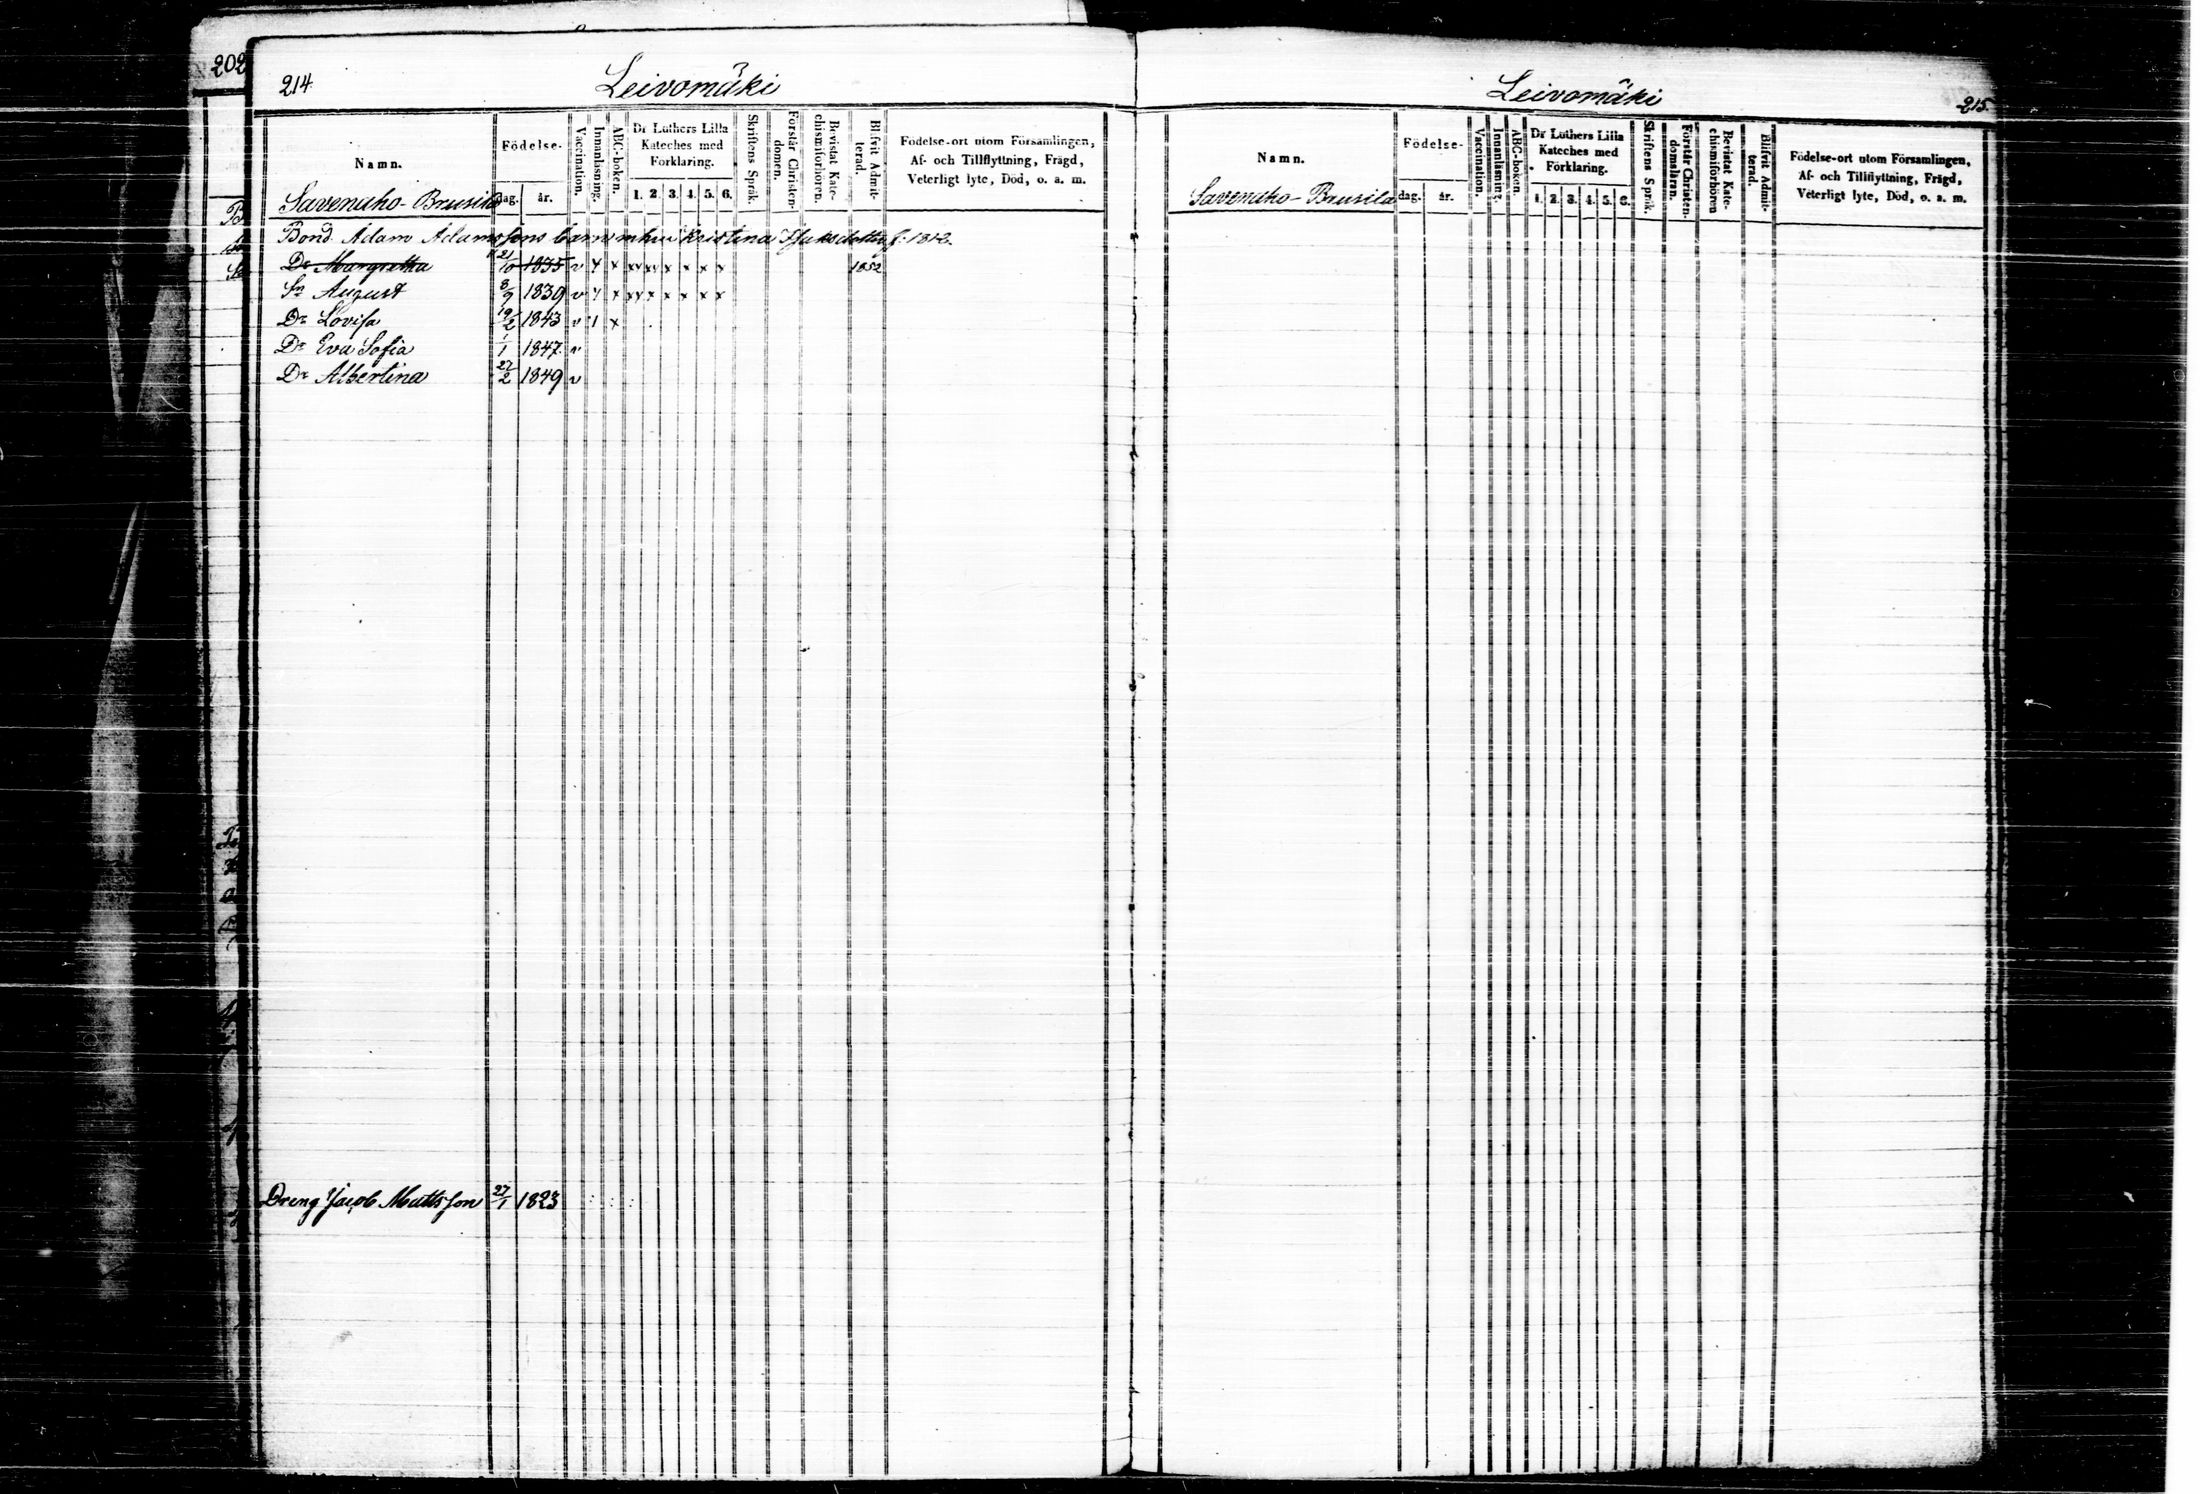 202
214
Leivomäki
Namn.
Födelse-
dag.
år.
Vaccination.
Innanläsning.
ABC-boken.
Dr Luthers Lilla
Kateches med
Förklaring.
1. 2. 3. 4. 5. 6.
Skriftens Språk.
Förstår Christen-
domen.
Bevistat Kate-
chismiförhören.
Blifvit Admit-
terad.
Födelse-ort utom Församlingen,
Af- och Tillflyttning, Frägd,
Veterligt lyte, Död, o. a. m.
Savenaho-Brusila
Bond Adam Adamssons barn m hu Kristina Isaksdotter f. 1812.
Dr Margretha 21/10 1835 v y x xx xx x x x x 1852
Sn August 8/9 1839 v y x xx x x x x x
Dr Lovisa 19/2 1843 v 1 x
Dr Eva Sofia 1/1 1847 v
Dr Albertina 27/2 1849 v
Dreng Jacob Mattsson 27/1 1823
Leivomäki
215.
Namn.
Födelse-
dag.
år.
Vaccination.
Innanläsning.
ABC-boken.
Dr Luthers Lilla
Kateches med
Förklaring.
1. 2. 3. 4. 5. 6.
Skriftens Språk.
Förstår Christen-
domsläran.
Bevistat Kate-
chismiförhören
Blifvit Admit-
terad.
Födelse-ort utom Församlingen,
Af- och Tillflyttning, Frägd,
Veterligt lyte, Död, o. a. m.
Savenaho-Brusila